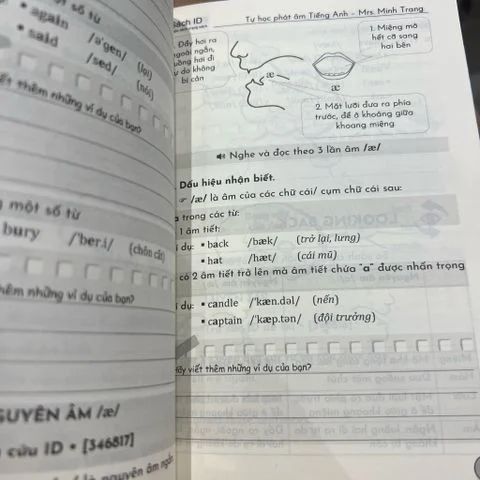 số từ
• again /ə'gen/ (lại)
• said /sed/ (nói)
viết thêm những ví dụ của bạn?
một số từ
bury /'ber.i/ (chôn cất)
thêm những ví dụ của bạn?
NGUYÊN ÂM /æ/
cứu ID • [346817]
là nguyên âm ngắn
Sách ID
Tự học phát âm Tiếng Anh – Mrs. Minh Trang
Đẩy hơi ra
ngoài ngắn,
luồng hơi đi
tự do không
bị cản
æ
1. Miệng mở
hết cỡ sang
hai bên
æ
2. Mặt lưỡi đưa ra phía
trước, để ở khoảng giữa
khoang miệng
Nghe và đọc theo 3 lần âm /æ/
Dấu hiệu nhận biết.
☞ /æ/ là âm của các chữ cái/ cụm chữ cái sau:
a trong các từ:
1 âm tiết:
dụ: • back /bæk/ (trở lại, lưng)
• hat /hæt/ (cái mũ)
có 2 âm tiết trở lên mà âm tiết chứa "a" được nhấn trọng
dụ: • candle /'kæn.dəl/ (nến)
• captain /'kæp.tən/ (đội trưởng)
Hãy viết thêm những ví dụ của bạn?